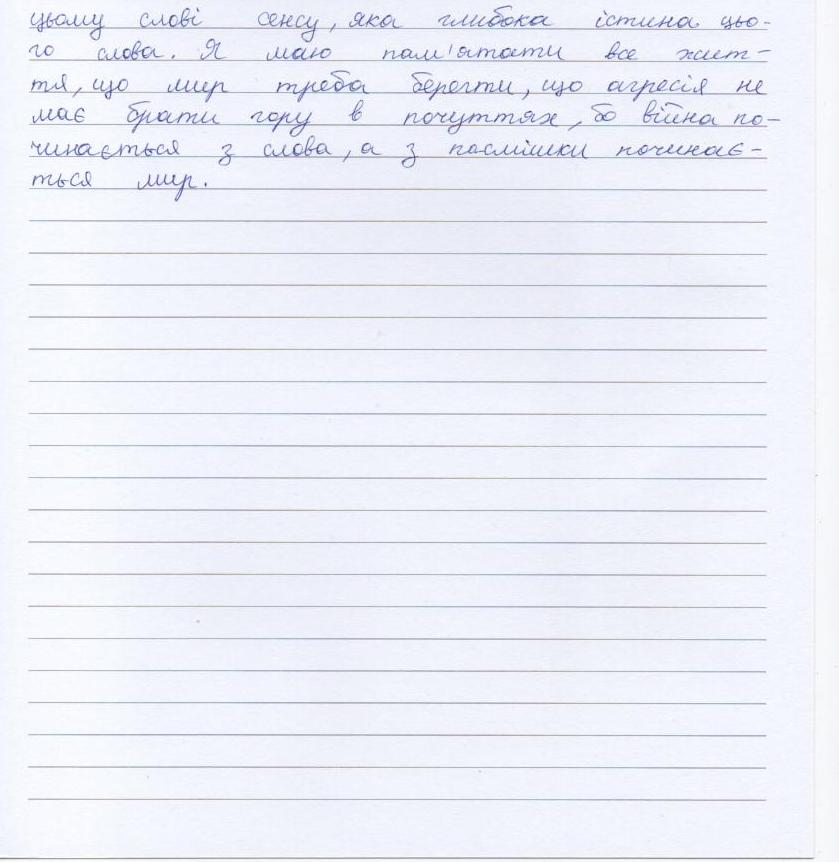 цьому слові сенсу, яка глибока істина цьо-
го слова. Я маю пам'ятати все жит-
тя, що мир треба берегти, що агресія не
має брати гору в почуттях, бо війна по-
чинається з слова, а з посмішки починає-
ться мир.